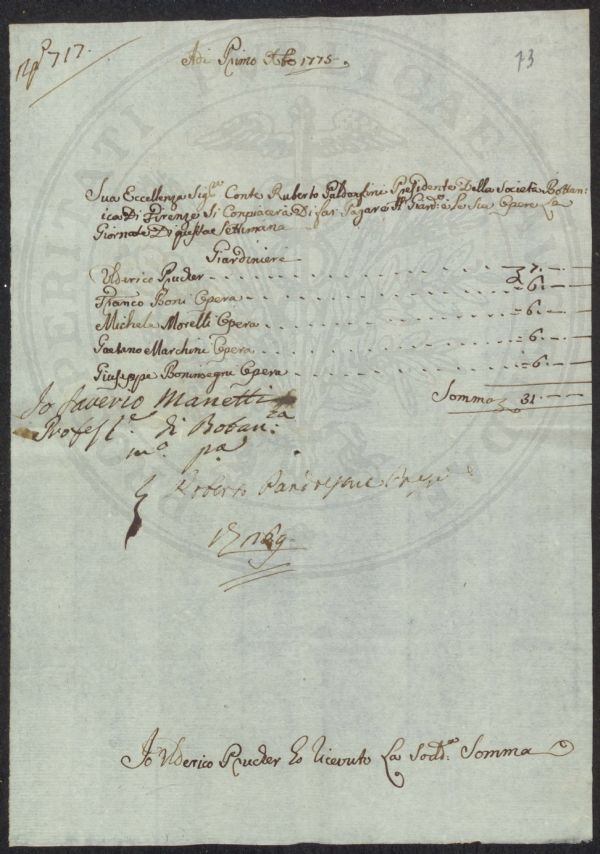 N.° 717.
73
Adi Primo Ab.o 1775.
Sua Eccellenza Sig.re Conte Ruberto Paldorfini Presidente Della Società Bottan=
ica Di Firenze Si Conpiacerà Di far Pagare Al Giard.e e Le Sue Opere La
Giornate Di questa Settimana
Giardiniere
Ulderico Prucker - - - - - - 7. -. -
Franco Boni Opera - - - - - - 6. -. -
Michele Morelli Opera - - - - - - 6. -. -
Gaetano Marchini Opera - - - - - - 6. -. -
Giuseppe Boninsegni Opera - - - - - - 6. -. -
Somma 31. -. -
Io Saverio Manetti
Profess.e di Botan.ca
m.o p.a
Roberto Pandolfini Presi
Io Ulderico Prucker ho ricevuto La Sod.a Somma